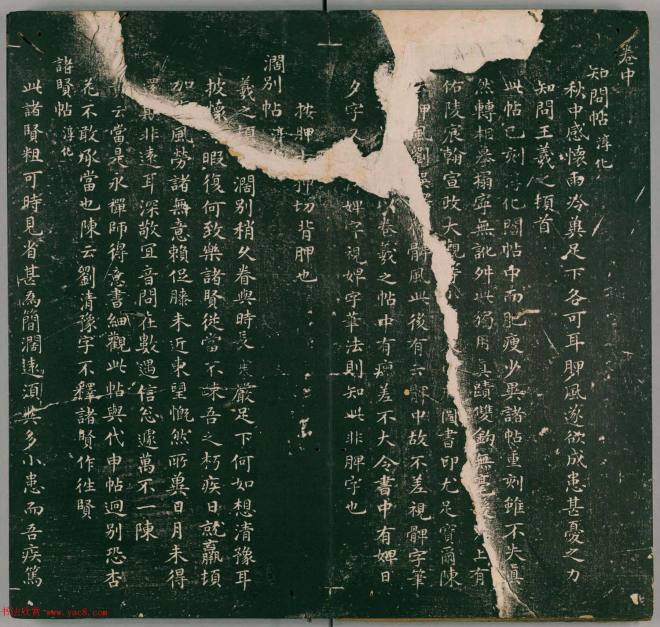 卷中
知問帖 淳化
秋中感懷雨冷冀足下各可耳胛風遂欲成患甚憂之力
知問王羲之頓首
此帖已刻淳化閣帖中而肥瘦少異諸帖重刻雖不失真
然轉相摹搨寧無訛舛此獨用真蹟雙鉤無毫 上有
佑陵宸翰宣政大觀 圖書印尤足寶爾陳
胛風 髀風此後有云髀中故不差視髀字筆
卷羲之帖中有 差不大令書中有婢日
夕字又 婢字視婢字筆法則知此非髀字也
按胛 押切背胛也
濶別帖 淳
羲之頓 濶別稍久眷與時長 嚴足下何如想清豫耳
披懷 暇復何致樂諸賢從當不疎吾之朽疾日就羸頓
加 風勞諸無意賴促膝未近東望慨然所冀日月未得
非遠耳深敬宜音問在數遇信怱遽萬不一陳
云當是永禪師得意書細觀此帖與代申帖迥別恐杏
花不敢承當也陳云劉清豫字不釋諸賢作往賢
諸賢帖 淳化
此諸賢粗可時見省甚為簡濶遠須共多小患而吾疾篤
书法欣赏 www.yac8.com